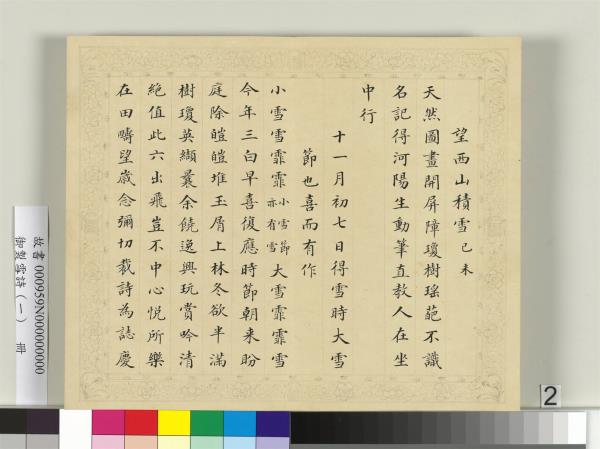 望西山積雪己未
天然圖畫開屏障瓊樹瑶葩不識
名記得河陽生動筆直教人在坐
中行
十一月初七日得雪時大雪
節也喜而有作
小雪雪霏霏小雪節亦有雪大雪雪霏霏
今年三白早喜復應時節朝来盼
庭除皚皚堆玉屑上林冬欲半滿
樹瓊英纈曩余饒逸興玩賞吟清
絶值此六出飛豈不中心悦所樂
在田疇望嵗念彌切裁詩為誌慶
故書 000959N000000000
御製雪詩（一） 冊
2